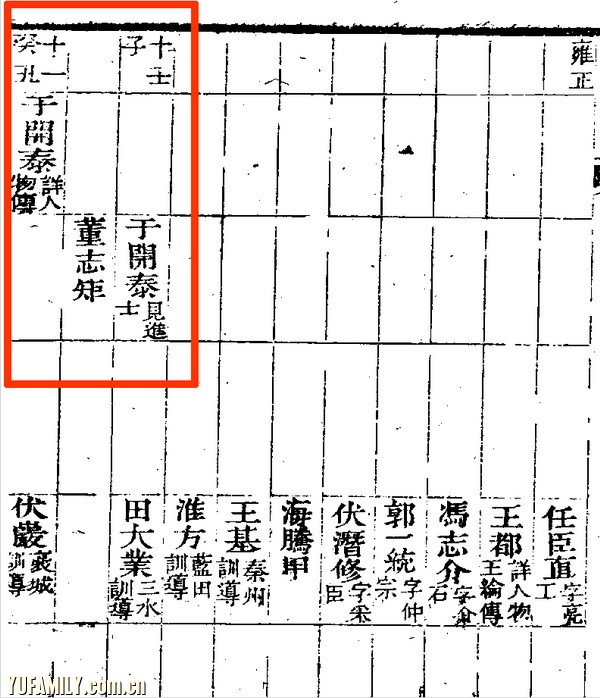 雍正
任臣直 字亮工
王都 詳人物王綸傳
馮志介
郭一統 字仲宗
伏潛修 字采臣
海騰甲
王基 秦州訓導
淮方 藍田訓導
十壬子
于開泰 見進士
田大業 三水訓導
董志矩
十一癸丑
于開泰 詳人物傳
伏巖 褒城訓導
YUFAMILY.com.cn